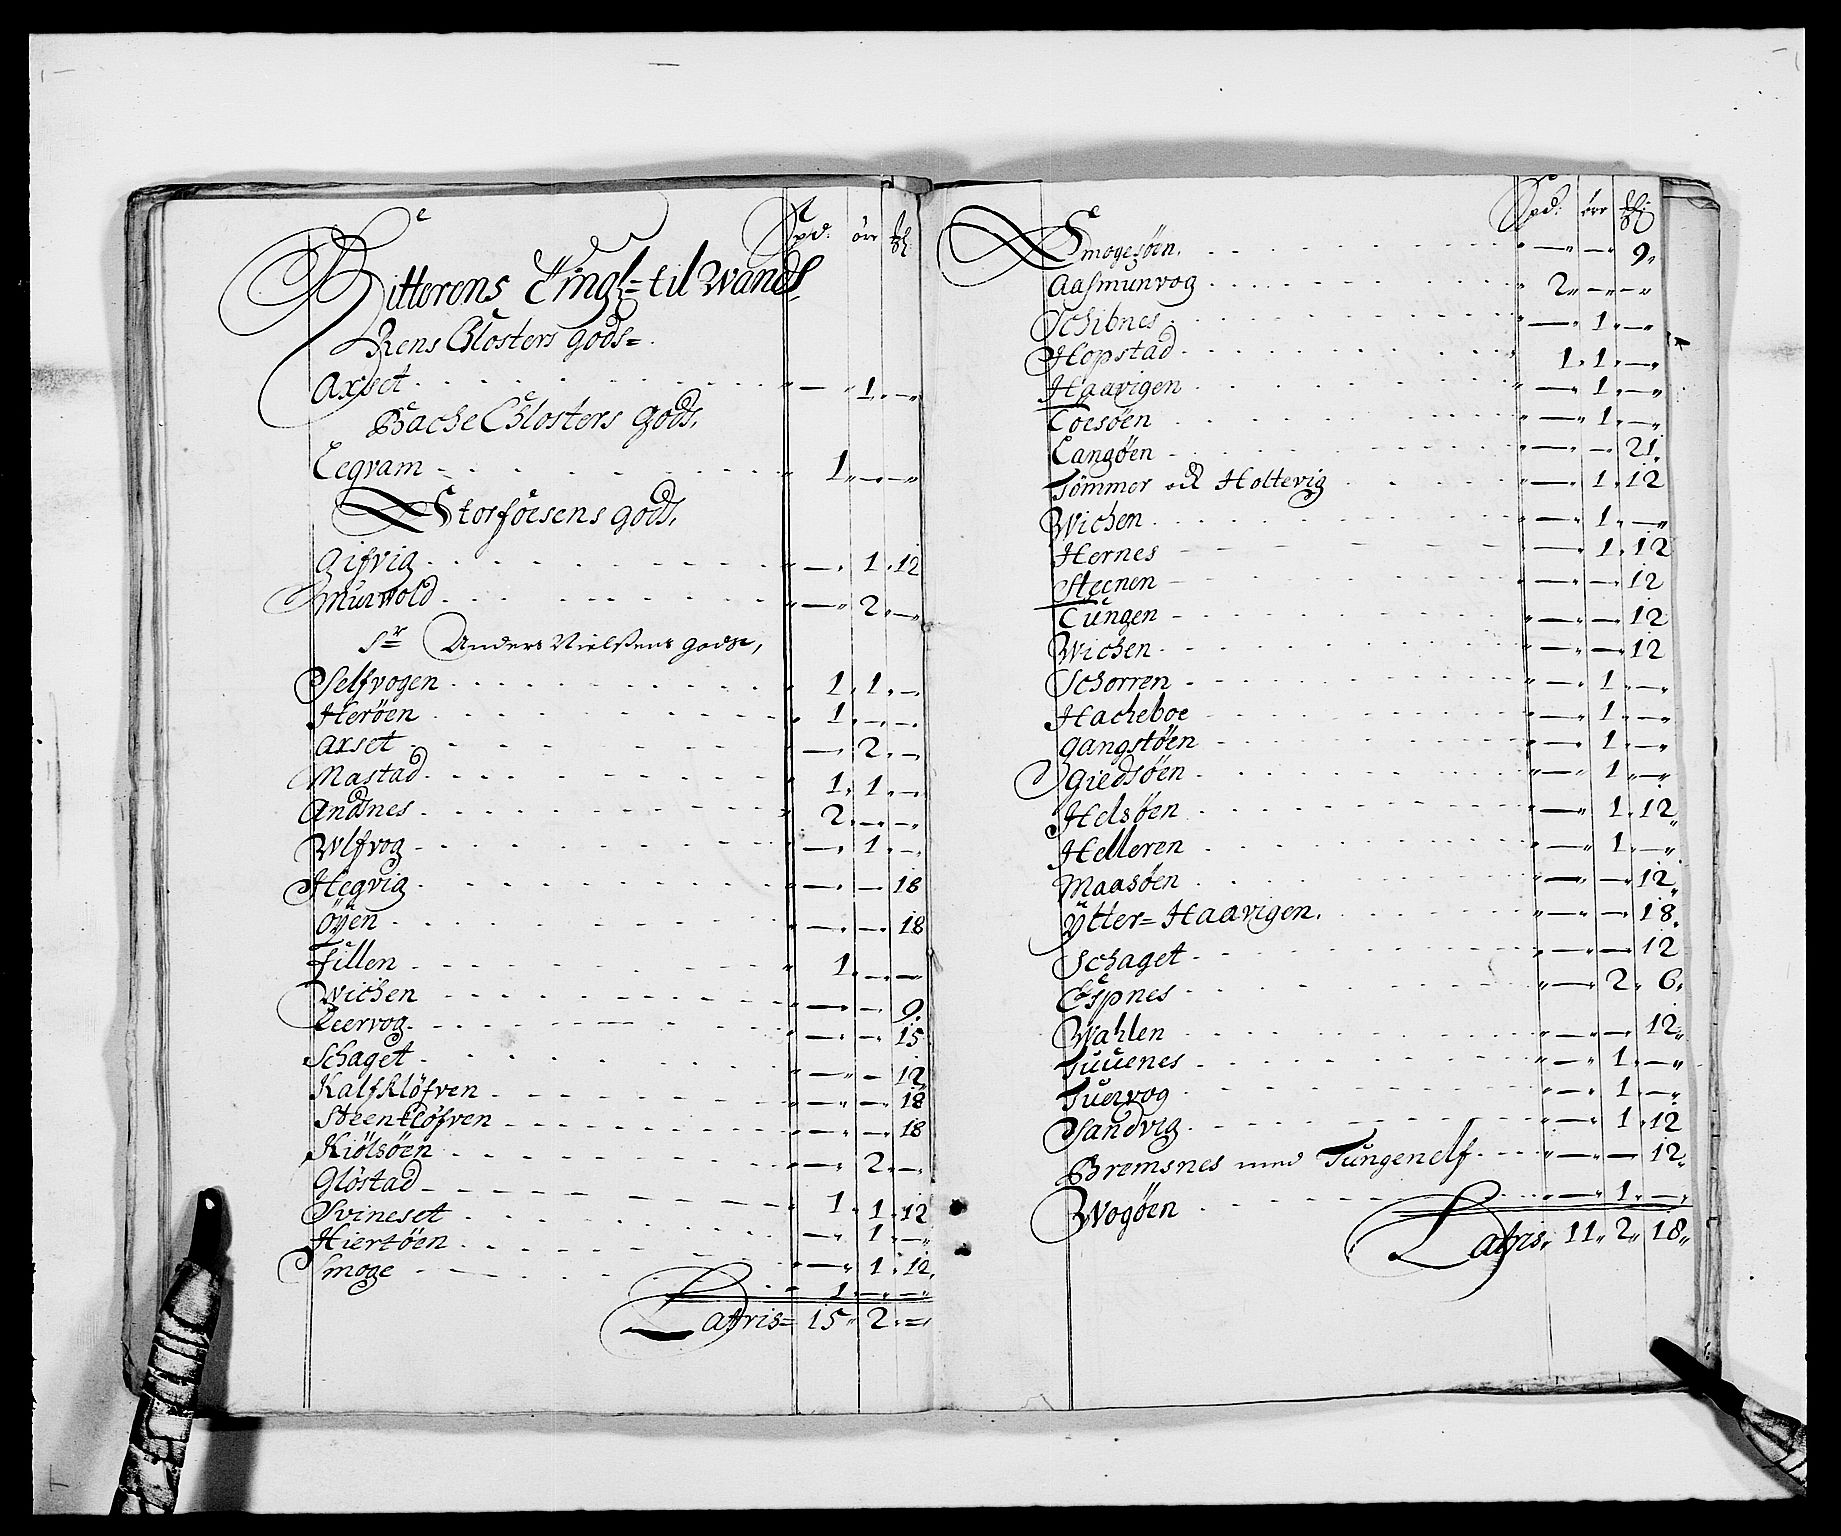 Spd: ører ℔
Hitterens Tingl= til Wands.
Rens Closters gods=
Axset " — " 1 " — "
Bache Closters gods.
Eegram " 1 " — " — "
Storfoesens gods.
Gifvig " — " 1 " 12
Murwold " — " 2 " — "
Sr Anders Nielssens gods,
Selfvogen " 1 " 1 " —
Herøen " 1 " — " —
Axset " — " 2 " —
Mastad " 1 " 1 " —
Andsnes " 2 " — " —
Wlfvog " — " 1 " —
Hegvig " — " — 18
Øÿen " — " — " 18
Fillen " 1 " — " —
Wichen " — " — " 9
Leervog " — " — " 15
Schaget " — " — 12
Kalfkløfven " — " — " 18
Steenkløfven " — " — " 18
Kiølsøen " — " 2 " —
Gløstad 1 " 1 " 12
Svineset " — " 1 " — "
Hiertøen " — " 1 " 12
Smoge " 1 " — " — "
Latris= 15 " 2 " =
Spd: ører ℔
Smogesøen. " — " — 9 "
Aasmunvog " 2 " — " — "
Schibnes " — " 1 " — "
Hopstad " 1 " 1 " — "
Haavigen " — " 1 " — "
Toesøen " — " 1 " — "
Langøen " — " — 21
Tømmer od Holtevig " — " 1 " 12
Wichen " — " 1 " — "
Hernes " — " 1 " 12
Steenen " — " — 12
Tungen " — " — 12
Wichen " — " — 12
Schorren " — " 1 " — "
Hacheboe " — " 1 " — "
Gangstøen " — " 1 " — "
Giedsøen " — " 1 " — "
Helsøen " — " 1 " 12 "
Helleren " — " 1 " — "
Maasøen " — " — 12 "
Ytter= Haavigen. " — " — 18 "
Schaget " — " — 12
Espnes " — " 2 " 6 "
Wahlen " — " — 12 "
Tuuenes " — " 1 " — "
Tuervog " — " 1 " — "
Sandvig " — " 1 " 12
Bremsnes med Tungenelf " — " — 12 "
Wogøen " — " 1 " — "
Latris, 11 " 2 " 18 "